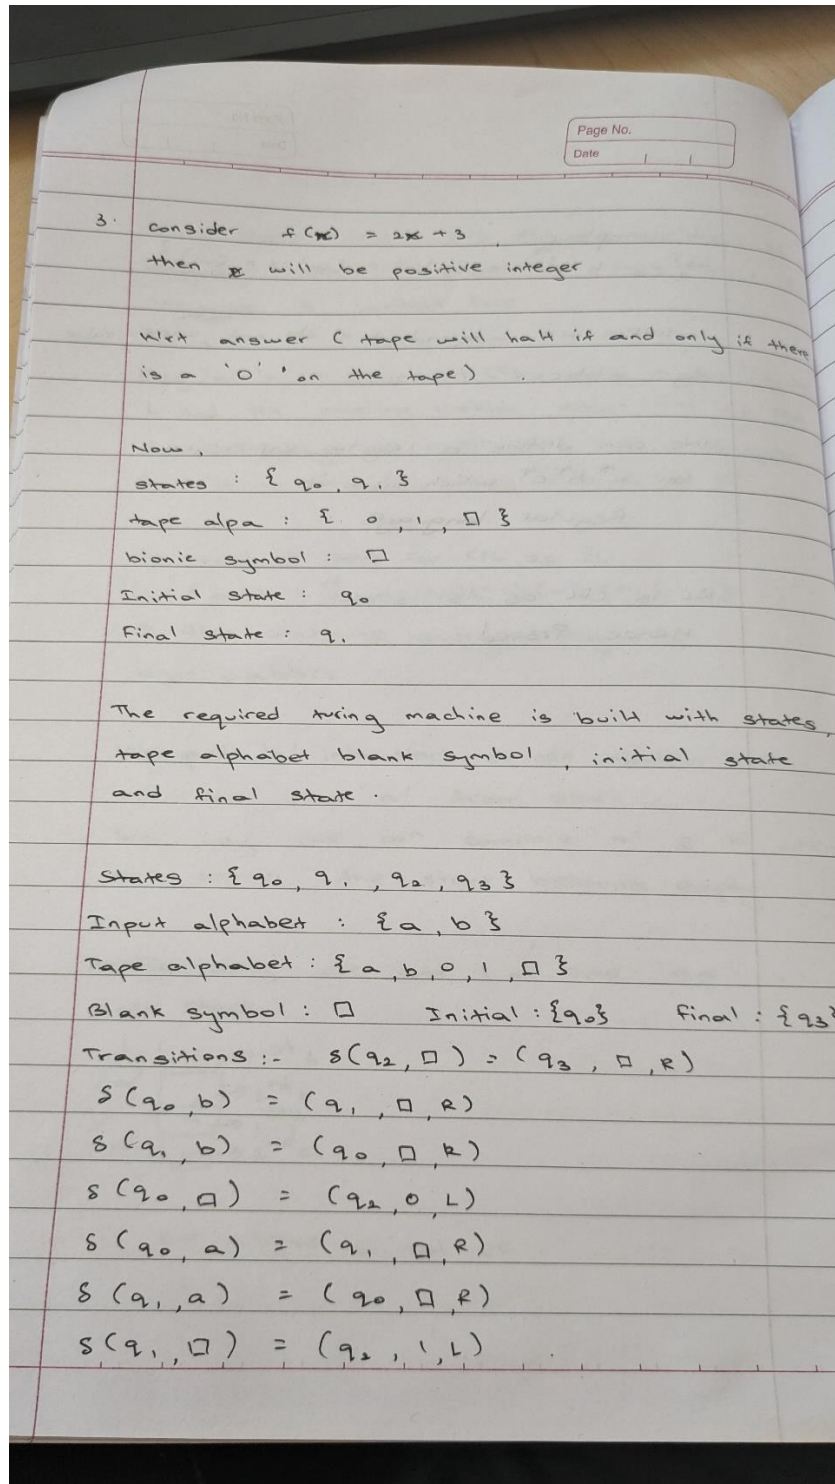 Page No.
Date
3. consider f(x) = 2x + 3
then x will be positive integer
Wrt answer ( tape will halt if and only if there
is a '0' 'on the tape) .
Now,
states : { q0, q1 }
tape alpa : { 0, 1, □ }
bionic symbol : □
Initial state : q0
Final state : q1
The required turing machine is built with states,
tape alphabet blank symbol, initial state
and final state.
States : { q0, q1, q2, q3 }
Input alphabet : { a, b }
Tape alphabet : { a, b, 0, 1, □ }
Blank symbol : □ Initial : {q0} final : {q3}
Transitions :- δ(q2, □) = (q3, □, R)
δ(q0, b) = (q1, □, R)
δ(q1, b) = (q0, □, R)
δ(q0, □) = (q2, 0, L)
δ(q0, a) = (q1, □, R)
δ(q1, a) = (q0, □, R)
δ(q1, □) = (q2, 1, L) .